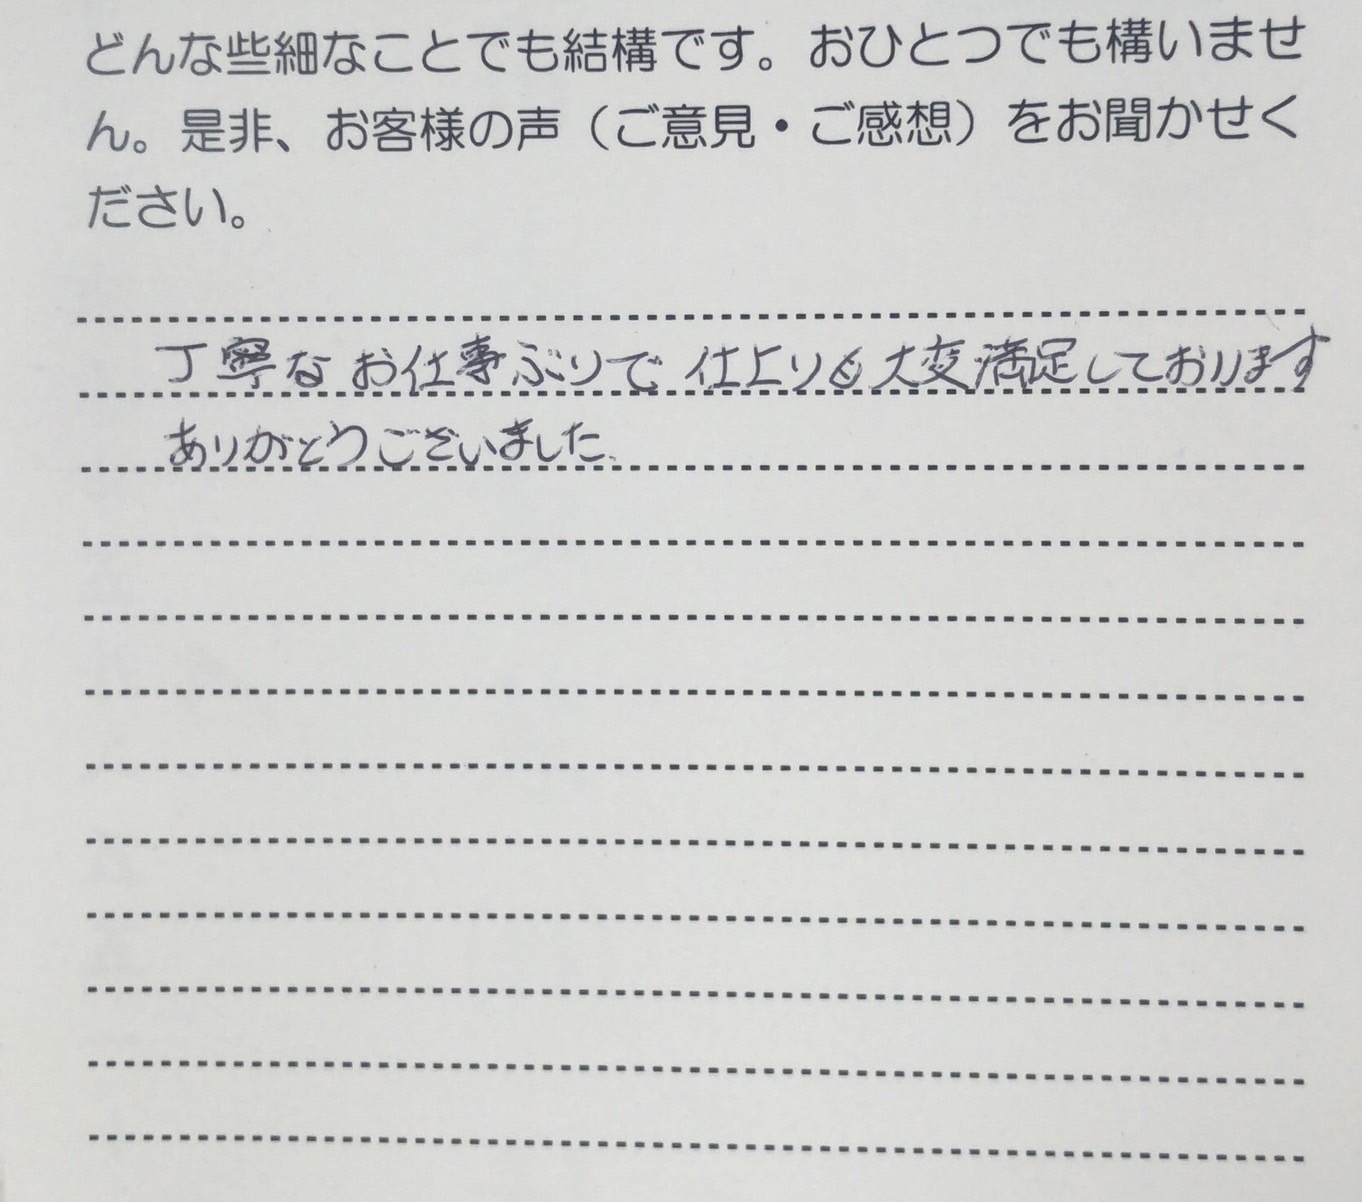 どんな些細なことでも結構です。おひとつでも構いませ
ん。是非、お客様の声（ご意見・ご感想）をお聞かせく
ださい。
丁寧なお仕事ぶりで 仕上りも大変満足しております
ありがとうございました。